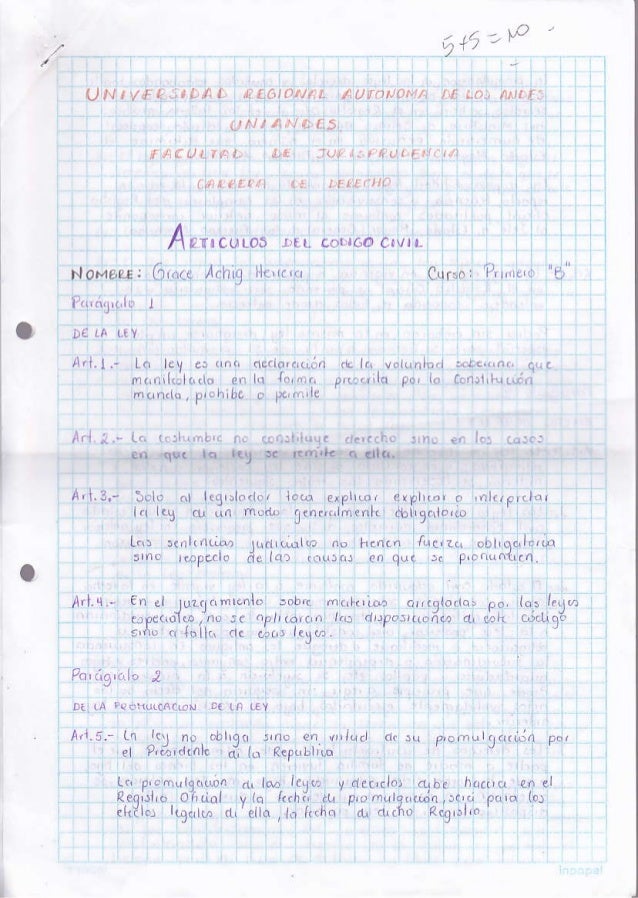 5+5=10
UNIVERSIDAD REGIONAL AUTONOMA DE LOS ANDES
UNIANDES
FACULTAD DE JURISPRUDENCIA
CARRERA DE DERECHO
ARTICULOS DEL CODIGO CIVIL
NOMBRE: Grace Achig Herrera Curso: Primero "B"
Parágrafo 1
DE LA LEY
Art.1.- La ley es una declaración de la voluntad soberana que
manifestada en la forma prescrita por la Constitución
manda, prohibe o permite
Art.2.- La costumbre no constituye derecho sino en los casos
en que la ley se remite a ella.
Art.3.- Solo al legislador toca explicar explicar o interpretar
la ley de un modo generalmente obligatorio
Las sentencias judiciales no tienen fuerza obligatoria
sino respecto de las causas en que se pronuncien.
Art.4.- En el juzgamiento sobre materias arregladas por las leyes
especiales, no se aplicaran las disposiciones de este código
sino a falta de esas leyes.
Parágrafo 2
DE LA PROMULGACION DE LA LEY
Art.5.- La ley no obliga sino en virtud de su promulgación por
el Presidente de la Republica
La promulgación de las leyes y decretos debe hacerce en el
Registro Oficial y la fecha de promulgación, será para los
efectos legales de ella, la fecha de dicho Registro
inpapel